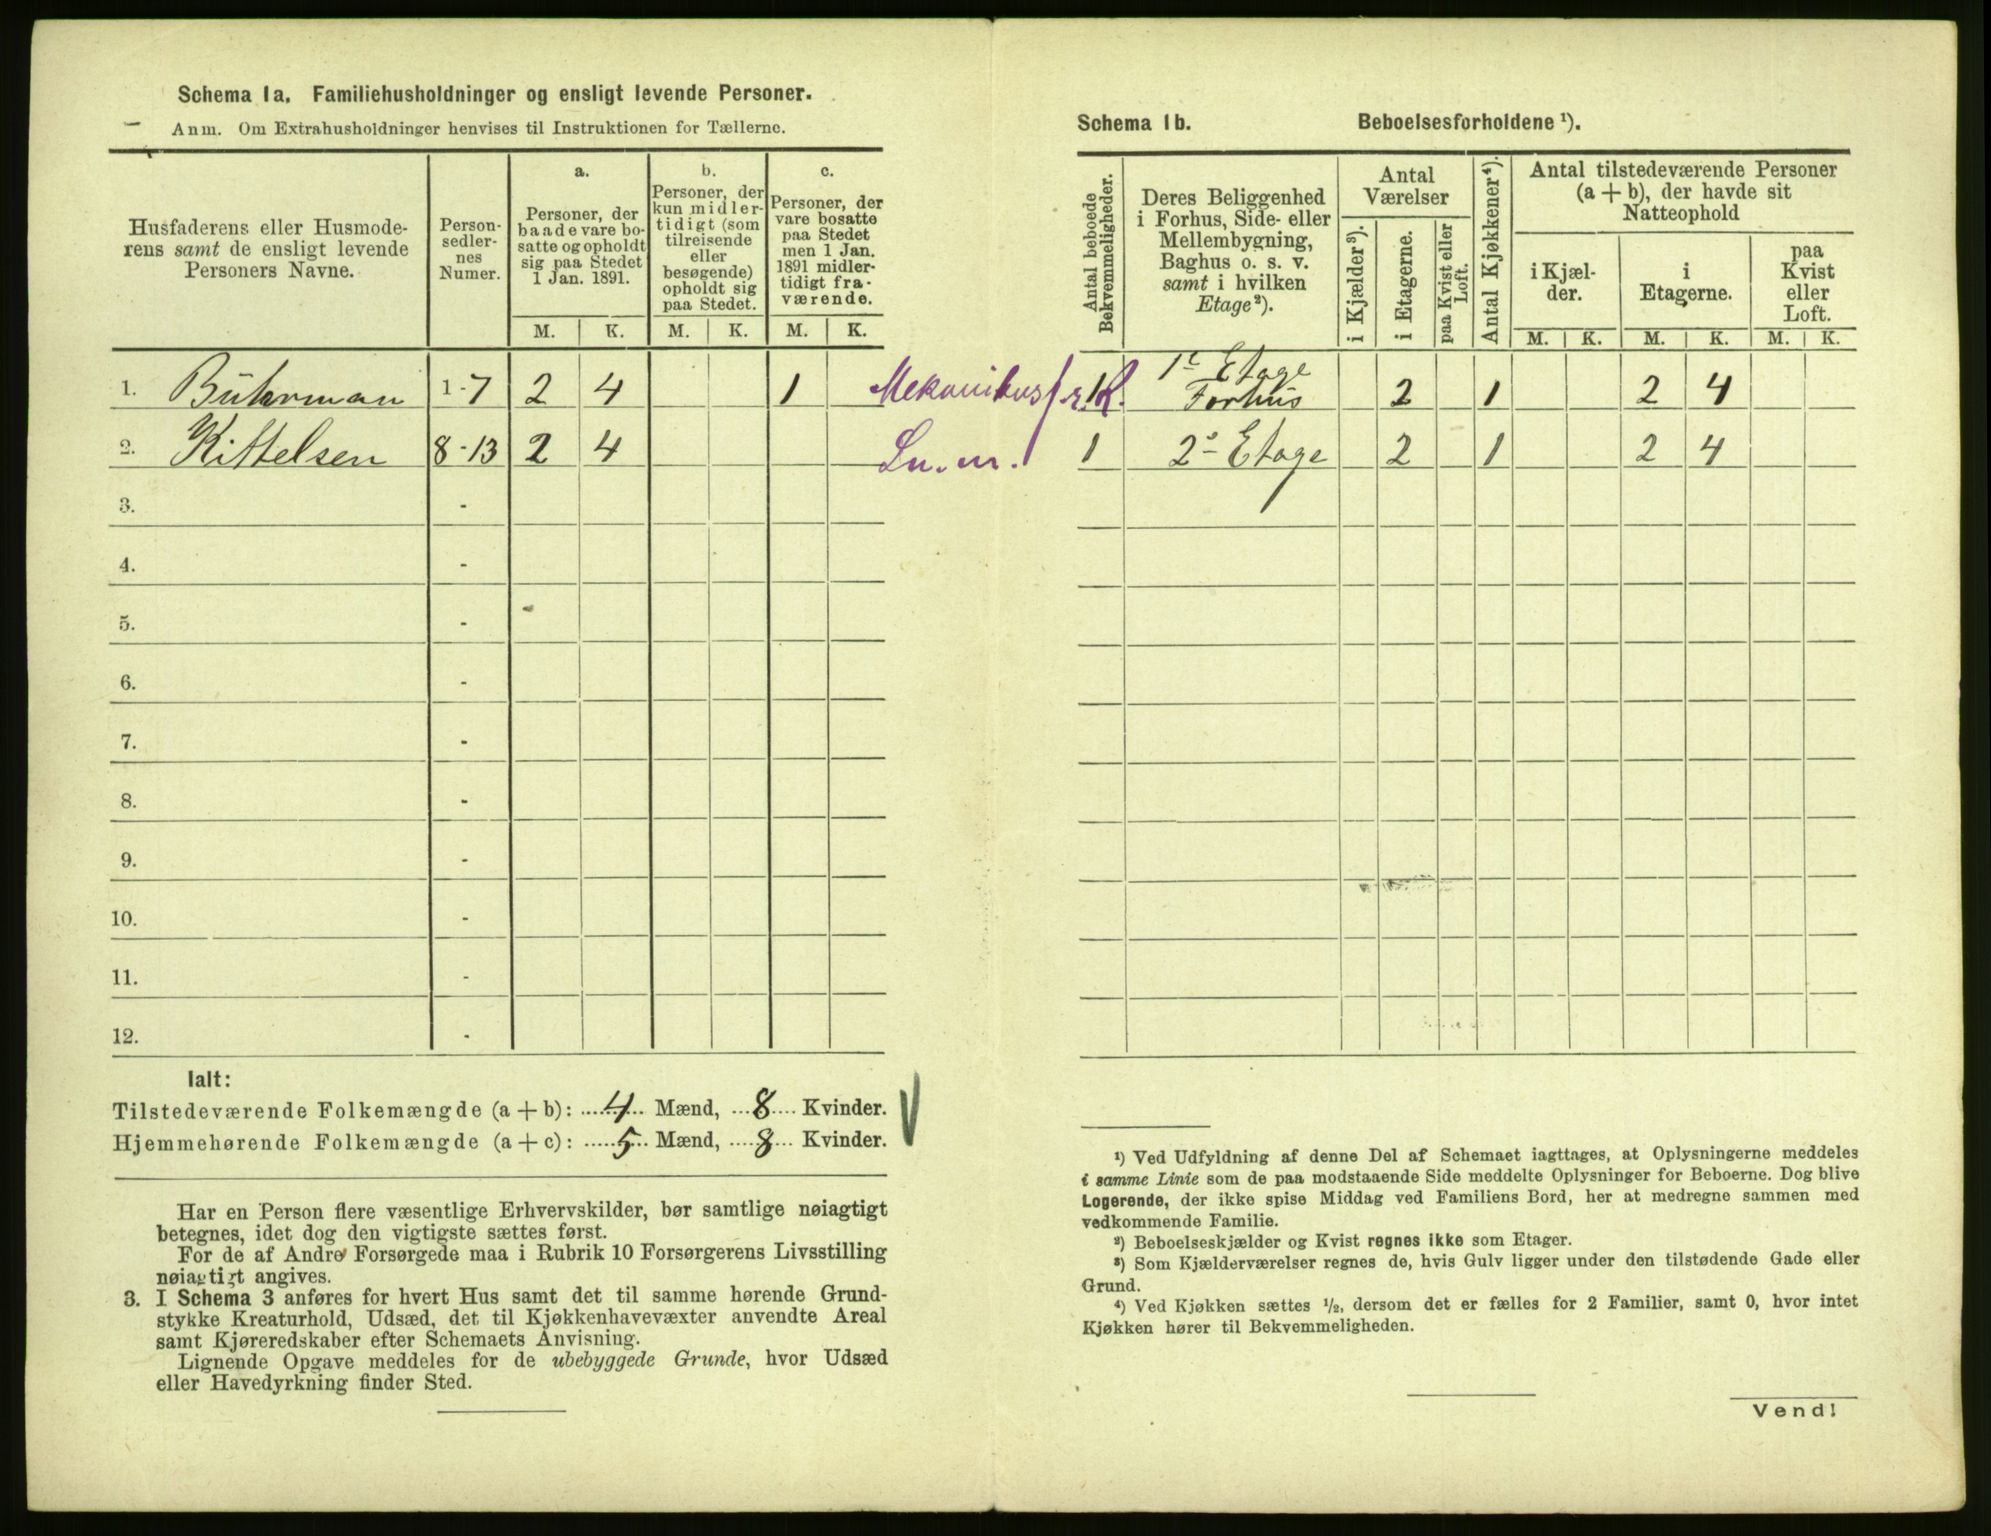 Schema 1a. Familiehusholdninger og ensligt levende Personer.
Anm. Om Extrahusholdninger henvises til Instruktionen for Tællerne.
Husfaderens eller Husmode-
rens samt de ensligt levende
Personers Navne.
Person-
sedler-
nes
Numer.
a.
Personer, der
baade vare bo-
satte og opholdt
sig paa Stedet
1 Jan. 1891.
b.
Personer, der
kun midler-
tidigt (som
tilreisende
eller
besøgende)
opholdt sig
paa Stedet.
c.
Personer, der
vare bosatte
paa Stedet
men 1 Jan.
1891 midler-
tidigt fra-
værende.
M. K. M. K. M. K.
1. Bührman 1-7 2 4 1
2. Kittelsen 8-13 2 4
3. -
4. -
5. -
6. -
7. -
8. -
9. -
10. -
11. -
12. -
Ialt:
Tilstedeværende Folkemængde (a + b): 4 Mænd, 8 Kvinder.
Hjemmehørende Folkemængde (a + c): 5 Mænd, 8 Kvinder.
Har en Person flere væsentlige Erhvervskilder, bør samtlige nøiagtigt
betegnes, idet dog den vigtigste sættes først.
For de af Andre Forsørgede maa i Rubrik 10 Forsørgerens Livsstilling
nøiagtigt angives.
3. I Schema 3 anføres for hvert Hus samt det til samme hørende Grund-
stykke Kreaturhold, Udsæd, det til Kjøkkenhavevæxter anvendte Areal
samt Kjøreredskaber efter Schemaets Anvisning.
Lignende Opgave meddeles for de ubebyggede Grunde, hvor Udsæd
eller Havedyrkning finder Sted.
Schema 1b. Beboelsesforholdene ¹).
Antal beboede
Bekvemmeligheder.
Deres Beliggenhed
i Forhus, Side- eller
Mellembygning,
Baghus o. s. v.
samt i hvilken
Etage²).
Antal
Værelser
i Kjælder³).
i Etagerne.
paa Kvist eller
Loft.
Antal Kjøkkener⁴).
Antal tilstedeværende Personer
(a + b), der havde sit
Natteophold
i Kjæl-
der.
i
Etagerne.
paa
Kvist
eller
Loft.
M. K. M. K. M. K.
Mekanikus 1 1ᵗ Etage
Forhus 2 1 2 4
1 2ᵒ Etage 2 1 2 4
¹) Ved Udfyldning af denne Del af Schemaet iagttages, at Oplysningerne meddeles
i samme Linie som de paa modstaaende Side meddelte Oplysninger for Beboerne. Dog blive
Logerende, der ikke spise Middag ved Familiens Bord, her at medregne sammen med
vedkommende Familie.
²) Beboelseskjælder og Kvist regnes ikke som Etager.
³) Som Kjælderværelser regnes de, hvis Gulv ligger under den tilstødende Gade eller
Grund.
⁴) Ved Kjøkken sættes ½, dersom det er fælles for 2 Familier, samt 0, hvor intet
Kjøkken hører til Bekvemmeligheden.
Vend!